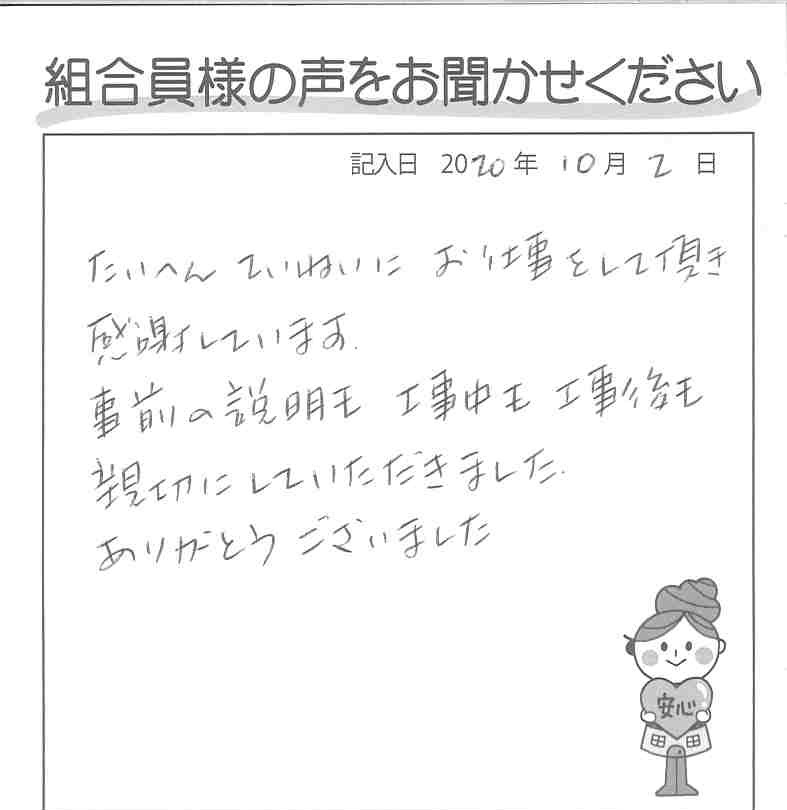 組合員様の声をお聞かせください
記入日 2020年 10月 2日
たいへん ていねいに お仕事をして頂き
感謝しています.
事前の説明も 工事中も 工事後も
親切にしていただきました.
ありがとう ございました
安心